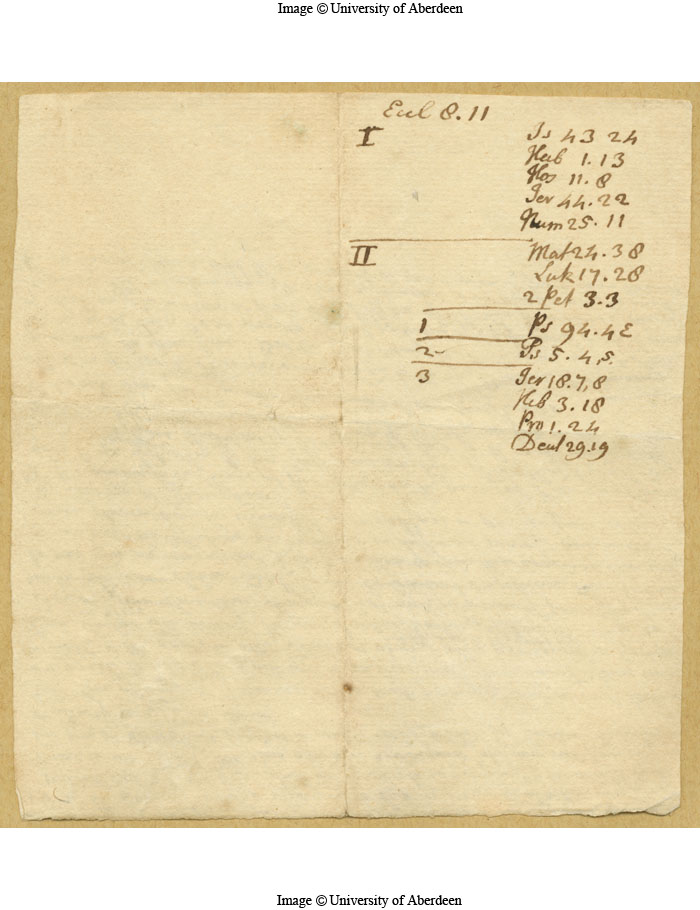 Image © University of Aberdeen
Eccl 8.11
I
Is 43 24
Hab 1.13
Hos 11.8
Jer 44.22
Num 25.11
II
Mat 24.38
Luk 17.28
2 Pet 3.3
1 Ps 94.4
2 Ps 5.4,5.
3 Jer 18.7,8
Heb 3.18
Pro 1.24
Deut 29.19
Image © University of Aberdeen